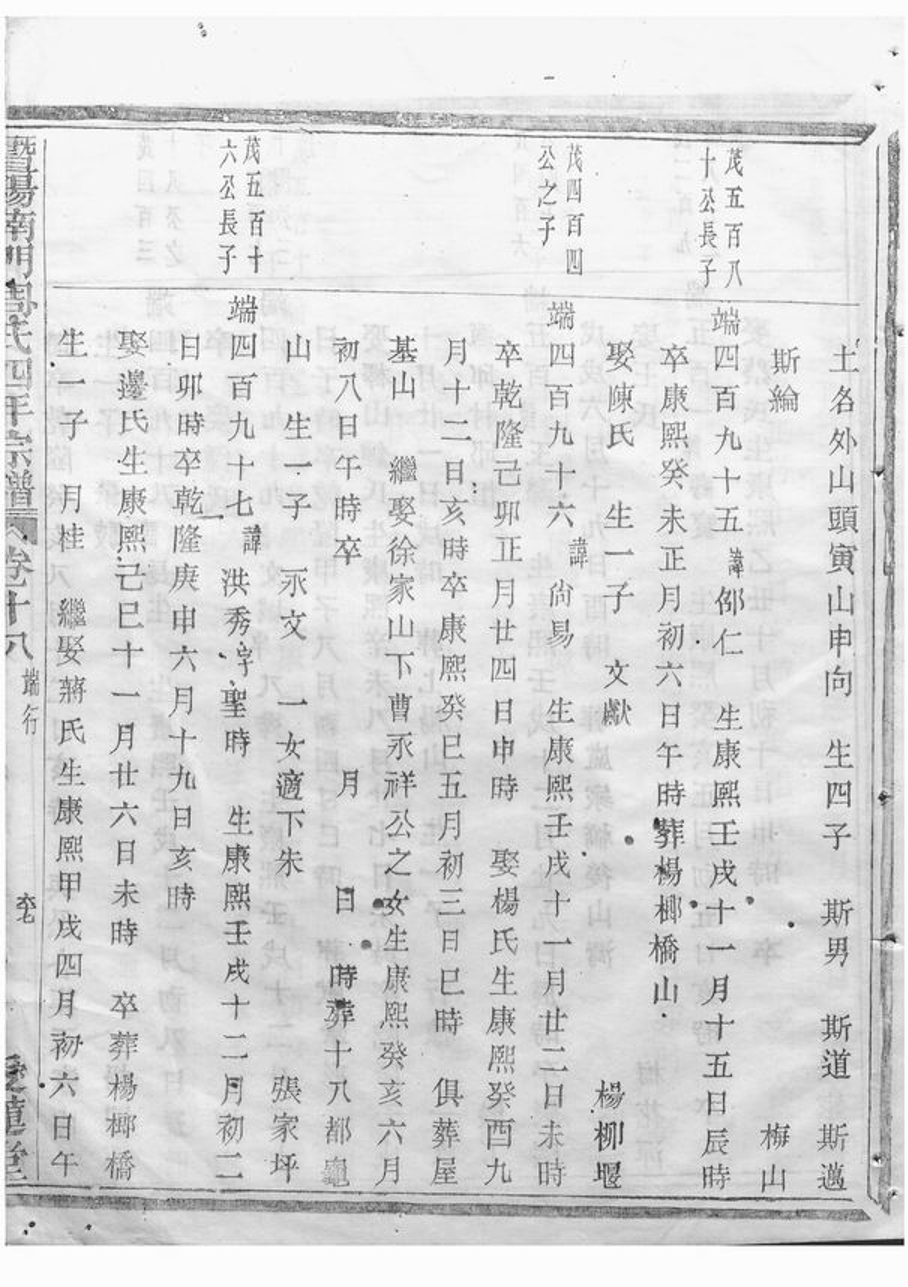 土名外山頭寅山申向　生四子　斯男　斯道　斯邁
斯綸　梅山
茂五百八
十公長子
端四百九十五諱邵仁　生康熙壬戌十一月十五日辰時
卒康熙癸未正月初六日午時葬楊梛橋山
娶陳氏　生一子　文獻　楊柳堰
茂四百四
公之子
端四百九十六諱尙易　生康熙壬戌十一月廿二日未時
卒乾隆己卯正月廿四日申時　娶楊氏生康熙癸酉九
月十二日亥時卒康熙癸巳五月初三日巳時　俱葬屋
基山　繼娶徐家山下曹永祥公之女生康熙癸亥六月
初八日午時卒　月　日　時葬十八都龜
山　生一子　永文　一女適下朱　張家坪
茂五百十
六公長子
端四百九十七諱洪秀字聖時　生康熙壬戌十二月初二
日卯時卒乾隆庚申六月十九日亥時
娶邊氏生康熙己巳十一月廿六日未時　卒葬楊梛橋
生一子　月桂　繼娶蔣氏生康熙甲戌四月初六日午
暨陽南門周氏四年宗譜　卷十八　端行　愛蓮堂